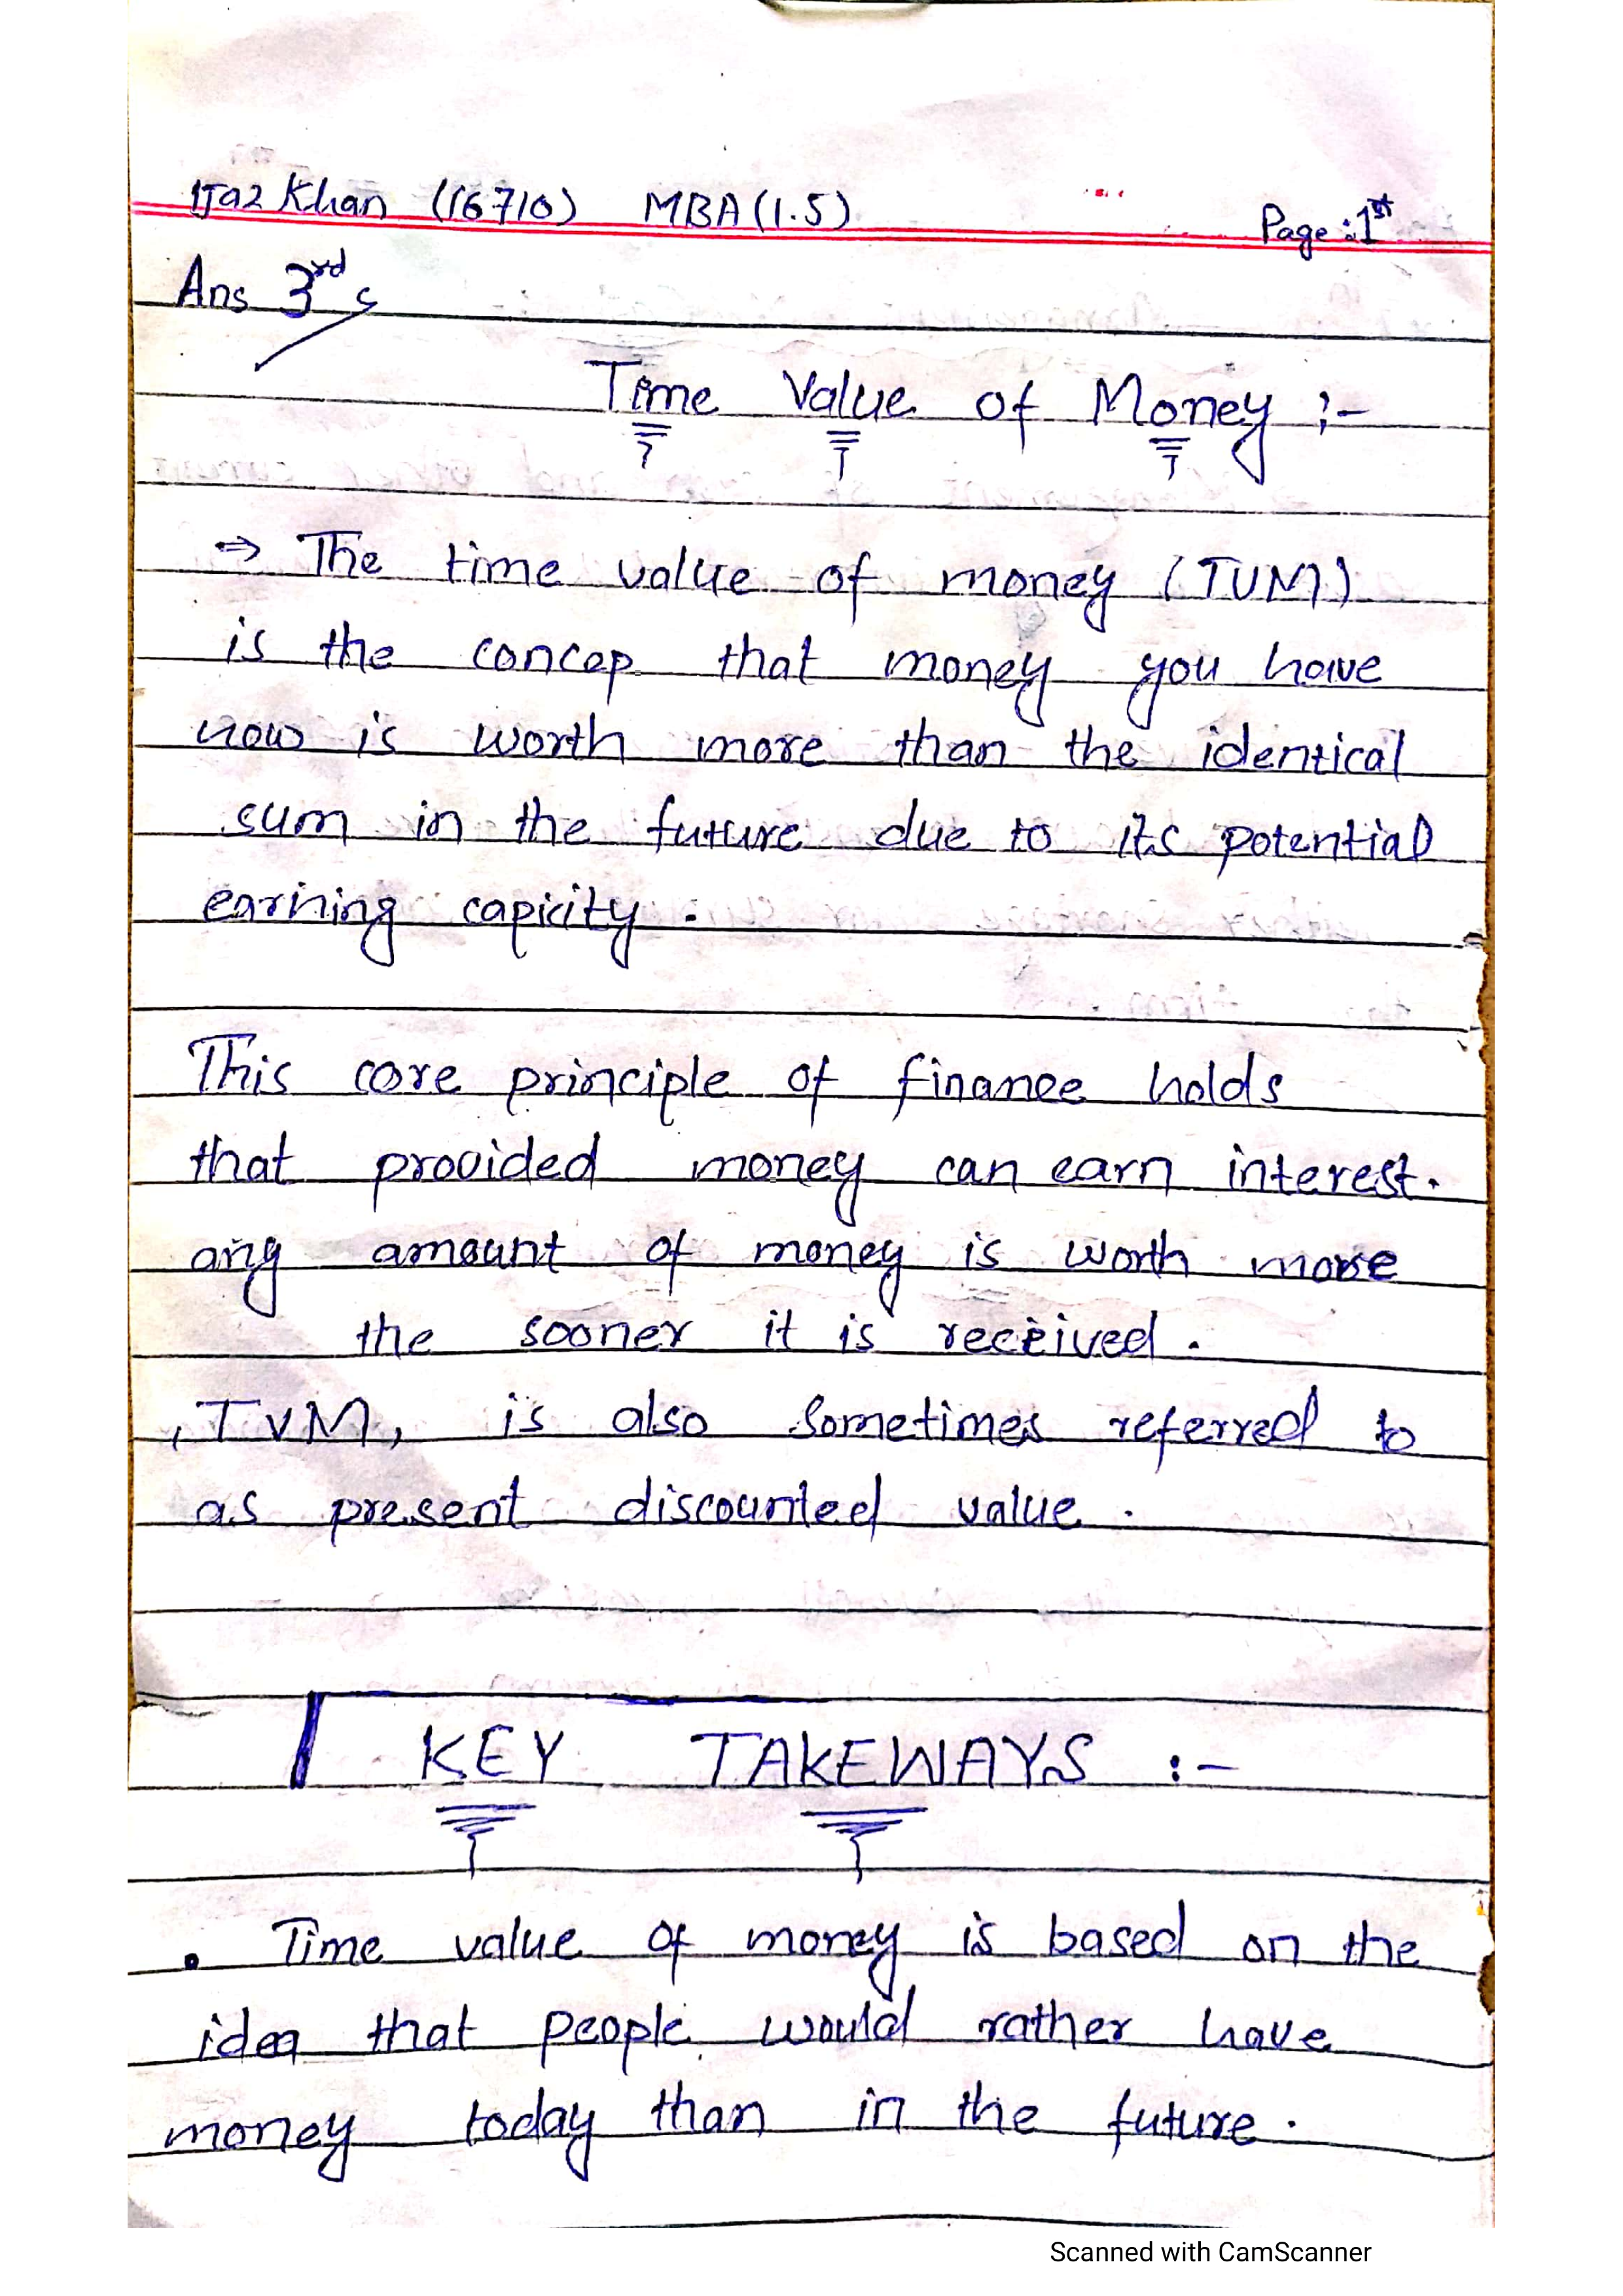 Ijaz Khan (16710) MBA (1.5)
Page: 1st
Ans 3rd
Time Value of Money :-
⇒ The time value of money (TVM)
is the concep that money you have
now is worth more than the identical
sum in the future due to its potential
earining capicity.
This core principle of finance holds
that provided money can earn interest.
any amount of money is worth more
the sooner it is received.
,TVM, is also sometimes referred to
as present discounted value.
KEY TAKEWAYS :-
. Time value of money is based on the
idea that people would rather have
money today than in the future.
Scanned with CamScanner